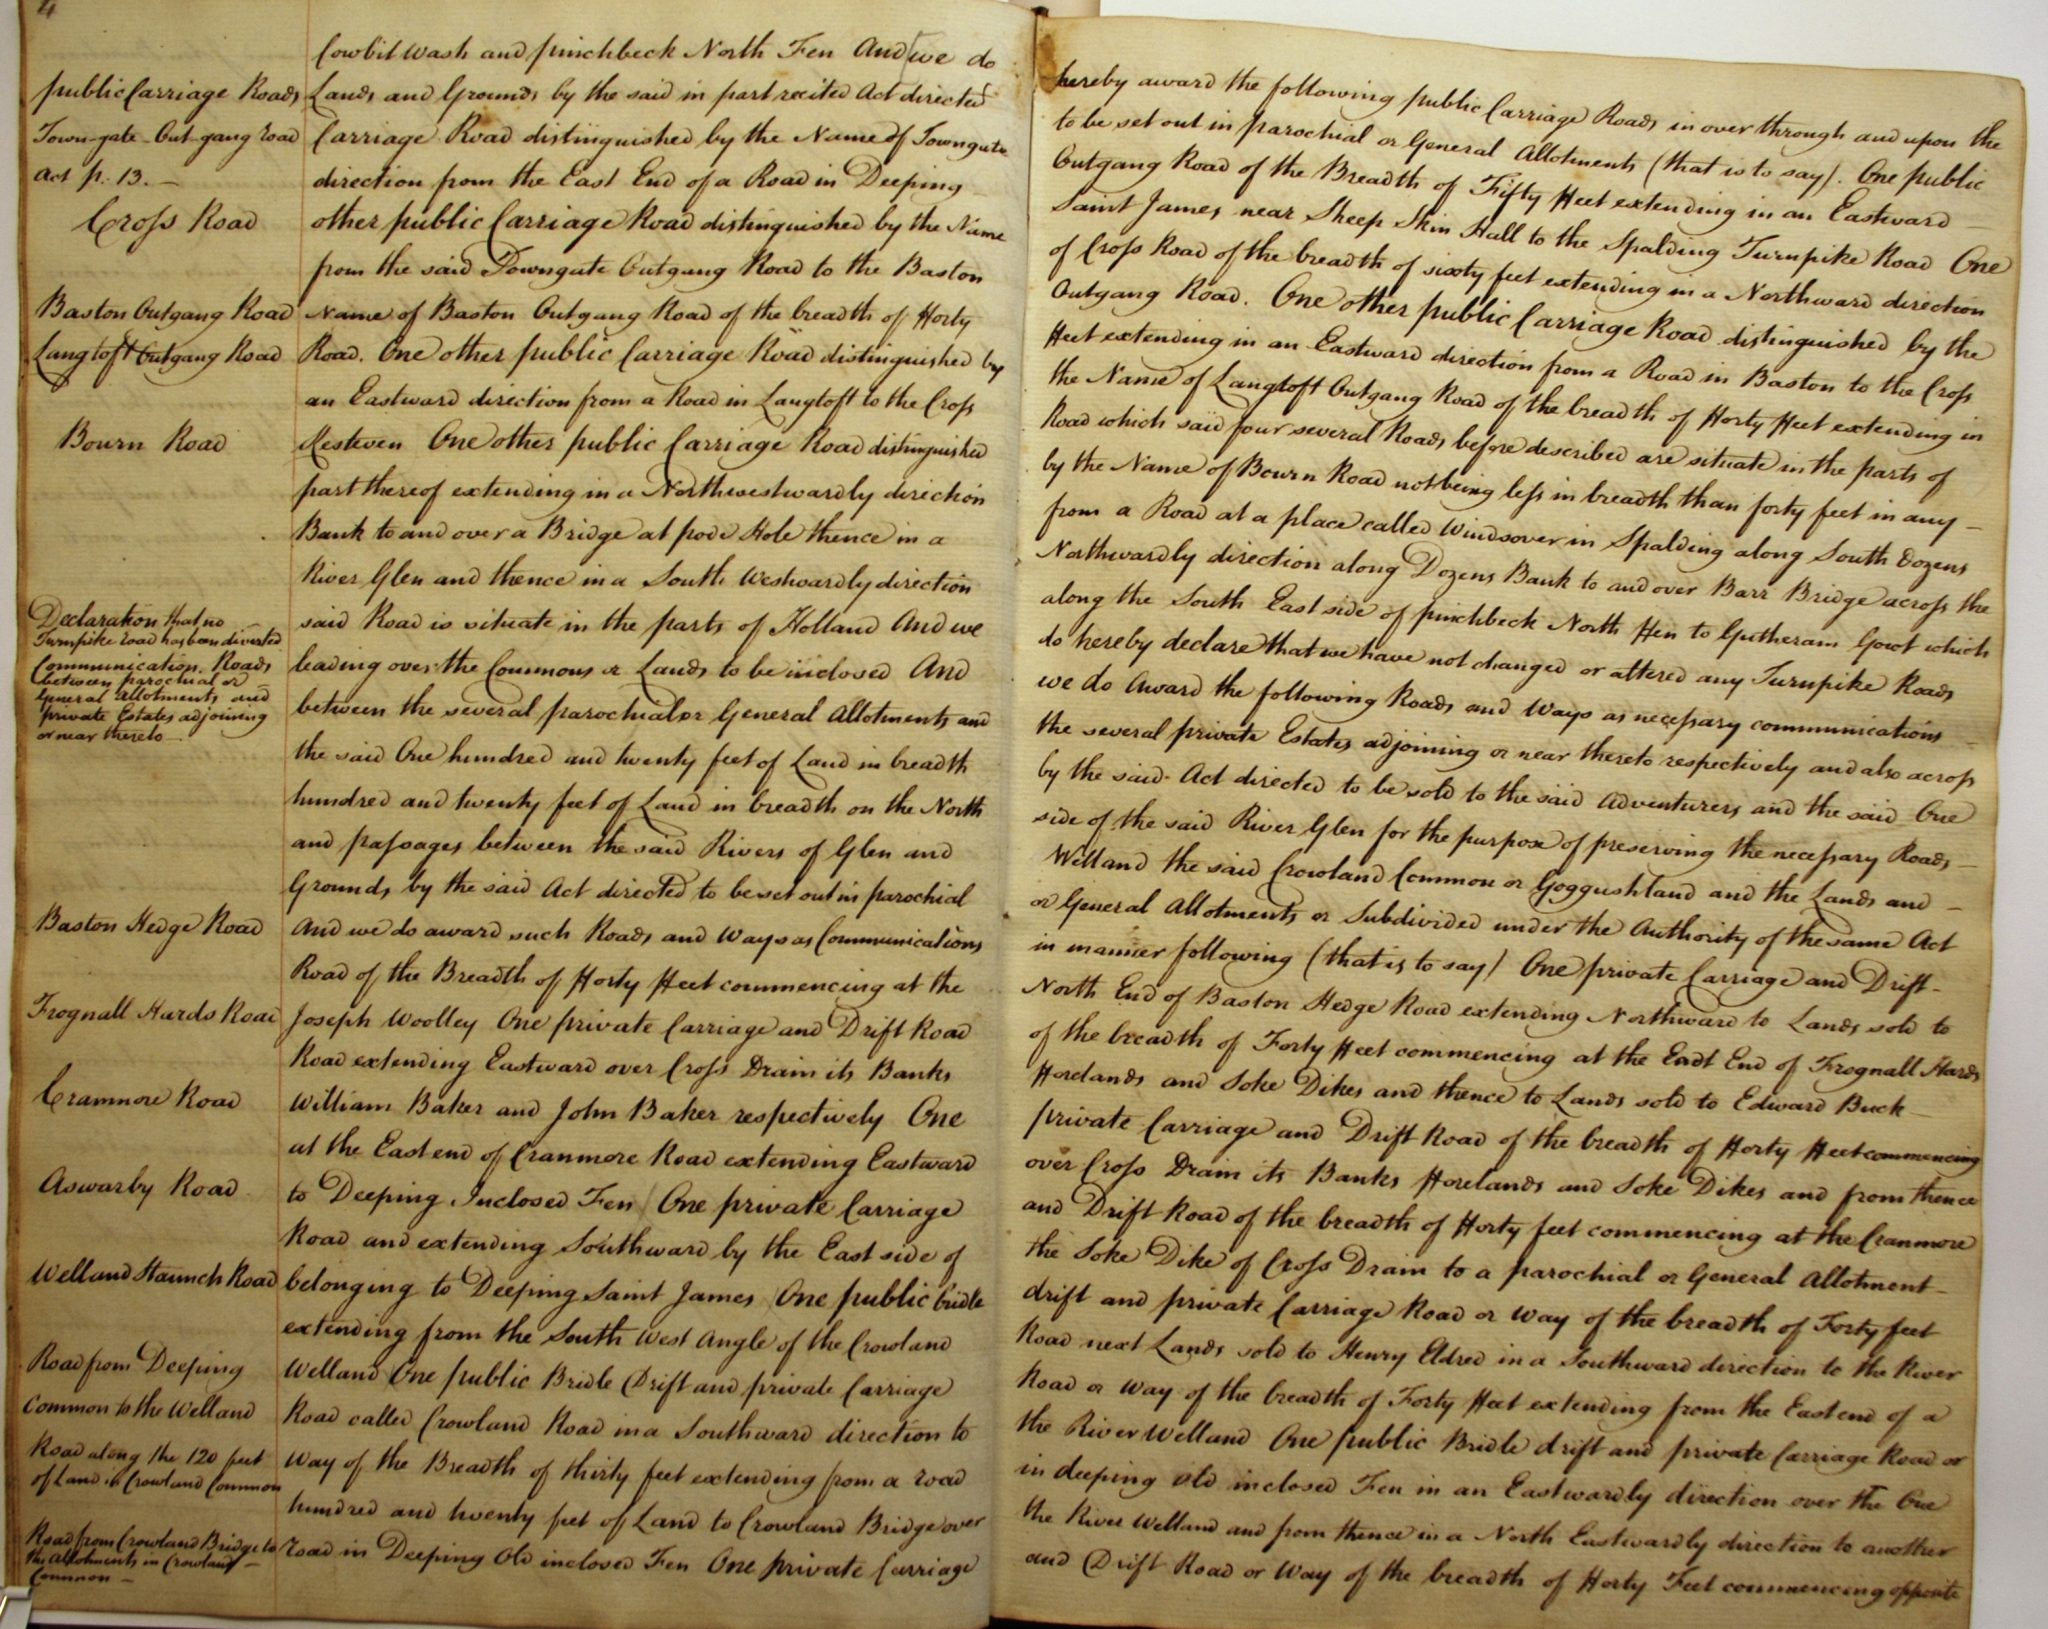 4
Cowbit Wash and pinchbeck North Fen And we do
hereby award the following public Carriage Roads in over through and upon the
public Carriage Roads
Lands and Grounds by the said in part recited Act directed
to be set out in parochial or General Allotments (that is to say). One public
Town-gate Out-gang road
Carriage Road distinguished by the Name of Towngate
Outgang Road of the Breadth of Fifty Feet extending in an Eastward
Act p. 13. —
direction from the East End of a Road in Deeping
Saint James near Sheep Skin Hall to the Spalding Turnpike Road One
Cross Road
other public Carriage Road distinguished by the Name
of Cross Road of the breadth of sixty feet extending in a Northward direction
from the said Towngate Outgang Road to the Baston
Outgang Road. One other public Carriage Road distinguished by the
Baston Outgang Road
Name of Baston Outgang Road of the breadth of Forty
Feet extending in an Eastward direction from a Road in Baston to the Cross
Langtoft Outgang Road
Road. One other public Carriage Road distinguished by
the Name of Langtoft Outgang Road of the breadth of Forty Feet extending in
an Eastward direction from a Road in Langtoft to the Cross
Road which said four several Roads before described are situate in the parts of
Bourn Road
Kesteven One other public Carriage Road distinguished
by the Name of Bourn Road not being less in breadth than forty feet in any —
part thereof extending in a Northwestwardly direction
from a Road at a place called Windsover in Spalding along South Dozens
Bank to and over a Bridge at pode Hole thence in a
Northwardly direction along Dozens Bank to and over Barr Bridge across the
River Glen and thence in a South Westwardly direction
along the South East side of pinchbeck North Fen to Gutheram Gowt which
Declaration that no
Turnpike road has been diverted
said Road is situate in the parts of Holland And we
do hereby declare that we have not changed or altered any Turnpike Roads
Communication Roads
between parochial or
leading over the Commons or Lands to be inclosed And
we do Award the following Roads and Ways as necessary communications
General Allotments and
private Estates adjoining
or near thereto —
between the several parochial or General Allotments and
the several private Estates adjoining or near thereto respectively and also across
the said One hundred and twenty feet of Land in breadth
by the said Act directed to be sold to the said Adventurers and the said One
hundred and twenty feet of Land in breadth on the North
side of the said River Glen for the purpose of preserving the necessary Roads —
and passages between the said Rivers of Glen and
Welland the said Crowland Common or Goggushland and the Lands and —
Grounds by the said Act directed to be set out in parochial
or General Allotments or Subdivided under the Authority of the same Act
Baston Hedge Road
And we do award such Roads and Ways as Communications
in manner following (that is to say) One private Carriage and Drift-
Road of the Breadth of Forty Feet commencing at the
North End of Baston Hedge Road extending Northward to Lands sold to
Frognall Hards Road
Joseph Woolley One private Carriage and Drift Road
of the breadth of Forty Feet commencing at the East End of Frognall Hards
Road extending Eastward over Cross Drain its Banks
Forelands and Soke Dikes and thence to Lands sold to Edward Buck —
Cranmore Road
William Baker and John Baker respectively One
private Carriage and Drift Road of the breadth of Forty Feet commencing
at the East end of Cranmore Road extending Eastward
over Cross Drain its Banks Forelands and Soke Dikes and from thence
Aswarby Road
to Deeping Inclosed Fen One private Carriage
and Drift Road of the breadth of Forty feet commencing at the Cranmore
Road and extending Southward by the East side of
the Soke Dike of Cross Drain to a parochial or General Allotment —
Welland Staunch Road
belonging to Deeping Saint James One public bridle
drift and private Carriage Road or Way of the breadth of Forty feet
extending from the South West Angle of the Crowland
Road next Lands sold to Henry Eldred in a Southward direction to the River
Road from Deeping
Welland One public Bridle Drift and private Carriage
Road or Way of the breadth of Forty Feet extending from the East end of a
Common to the Welland
Road called Crowland Road in a Southward direction to
the River Welland One public Bridle drift and private Carriage Road or
Road along the 120 feet
of Land in Crowland Common
Way of the Breadth of thirty feet extending from a road
in deeping old inclosed Fen in an Eastwardly direction over the One
hundred and twenty feet of Land to Crowland Bridge over
the River Welland and from thence in a North Eastwardly direction to another
Road from Crowland Bridge to
the Allotments in Crowland —
Common —
road in Deeping Old inclosed Fen One private Carriage
and Drift Road or Way of the breadth of Forty Feet commencing opposite